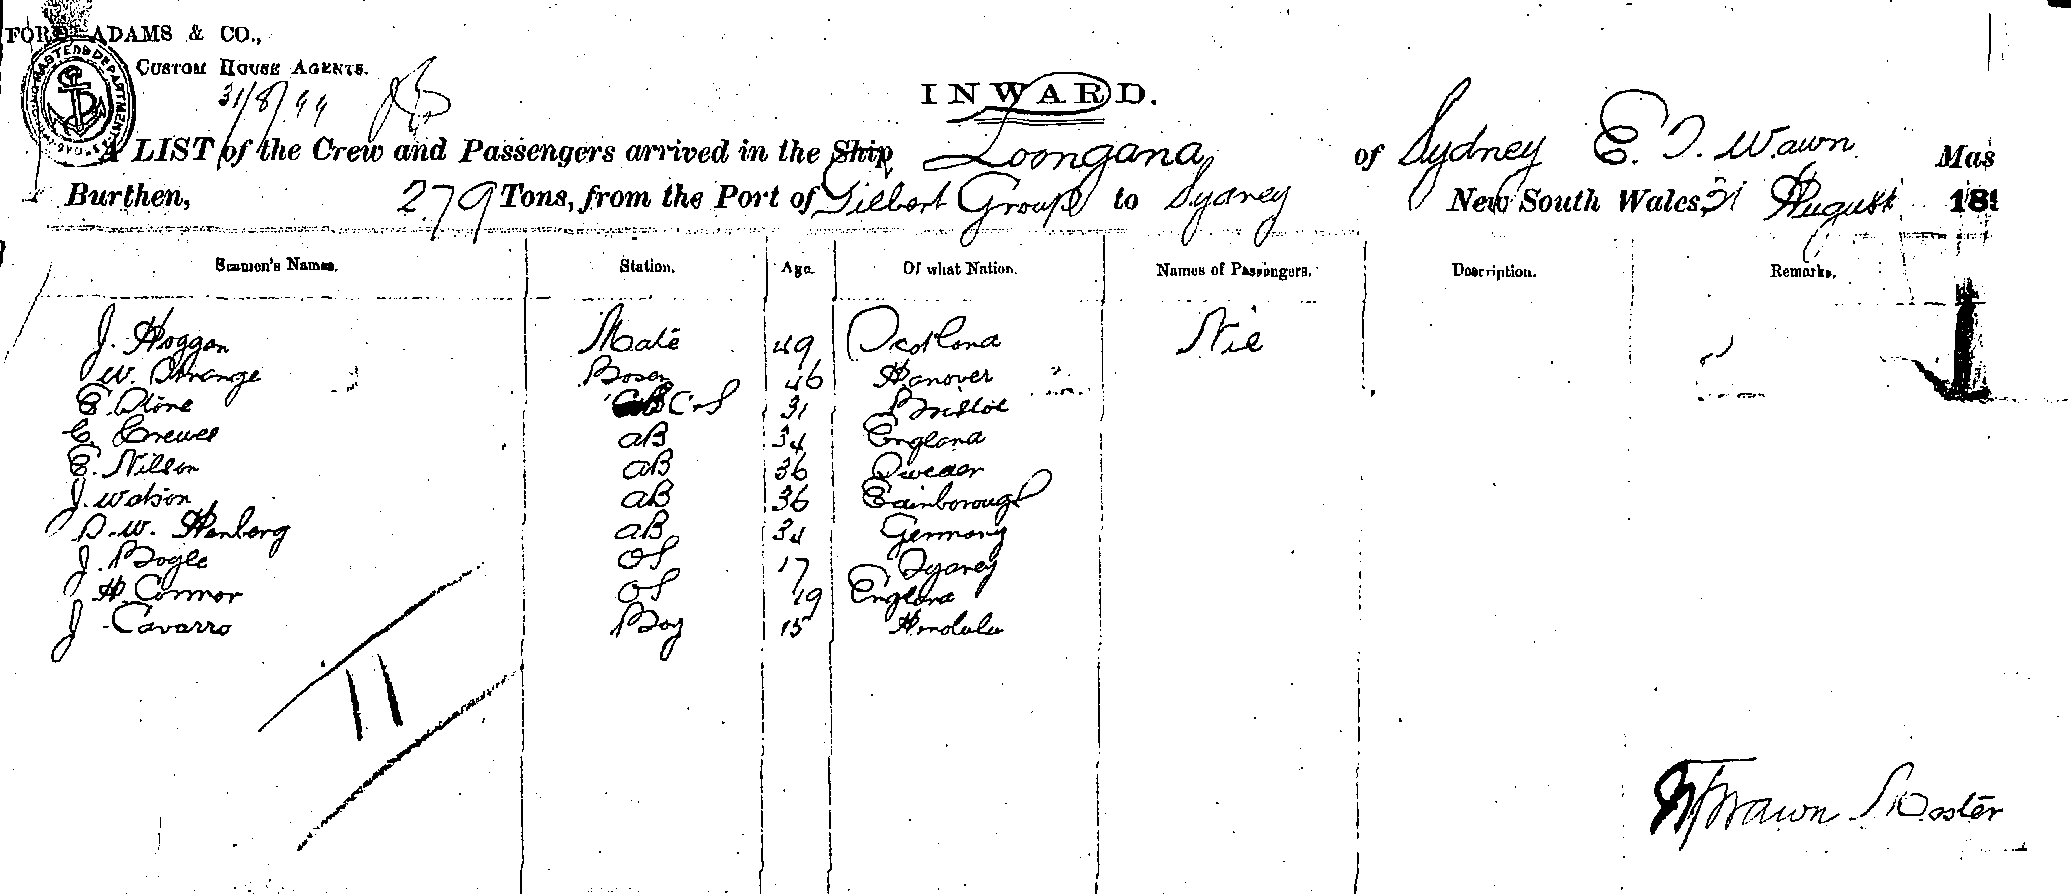 FORD, ADAMS & CO.,
CUSTOM HOUSE AGENTS.
31/8/99
INWARD.
A LIST of the Crew and Passengers arrived in the Ship Loongana of Sydney E. T. Wawn Mas
Burthen, 279 Tons, from the Port of Gilbert Group to Sydney New South Wales, 31 August 189
Seamen's Names. Station. Age. Of what Nation. Names of Passengers. Description. Remarks.
J. Hoggan Mate 49 Scotland Nil
W. Strange Bosen 46 Hanover
E. Stone 31 Bristol
C. Crewes AB 34 England
E. Nilson AB 36 Sweden
J. Watson AB 36 Edinborough
D. W. Henberg AB 34 Germany
J. Bogle OS 17 Sydney
H. Connor OS 19 England
J Cavarro Boy 15 Honolulu
11
Wawn Master